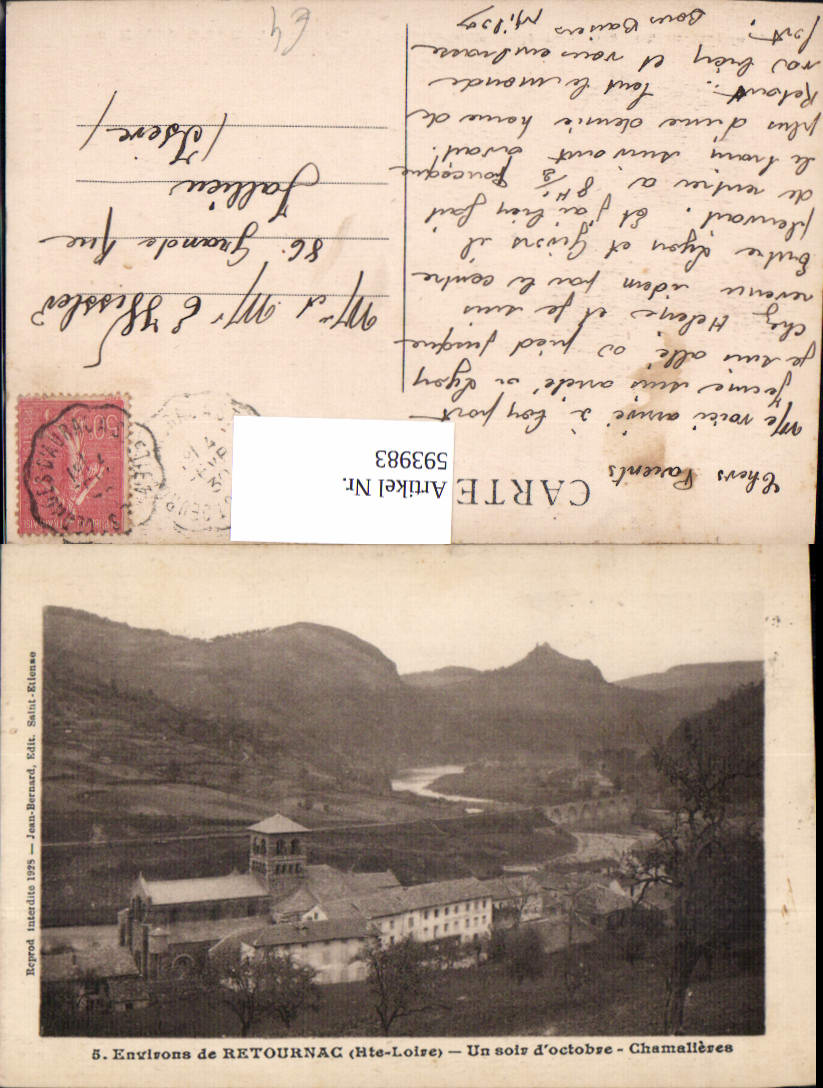 CARTE
Artikel Nr.
593983
Chers Parents
Me voici arrivé à bon port
je me suis arrêté à Lyon
je suis allé à pied jusque
chez Helene et je suis
revenu idem par le centre
Entre Lyon et Givors il
pleuvait. Et j'ai bien fait
de rentrer à 8H 1/2 pourceque
le train suivant avait
plus d'une demie heure de
Retard. Tout le monde
va bien et vous embrasse
fort.
Bons Baisers
Mr et Mme E
86 Grande Rue
Jallieu
(Isère)
50c
5. Environs de RETOURNAC (Hte-Loire) — Un soir d'octobre - Chamalières
Reprod interdite 1928 — Jean-Bernard, Edit. Saint-Etienne